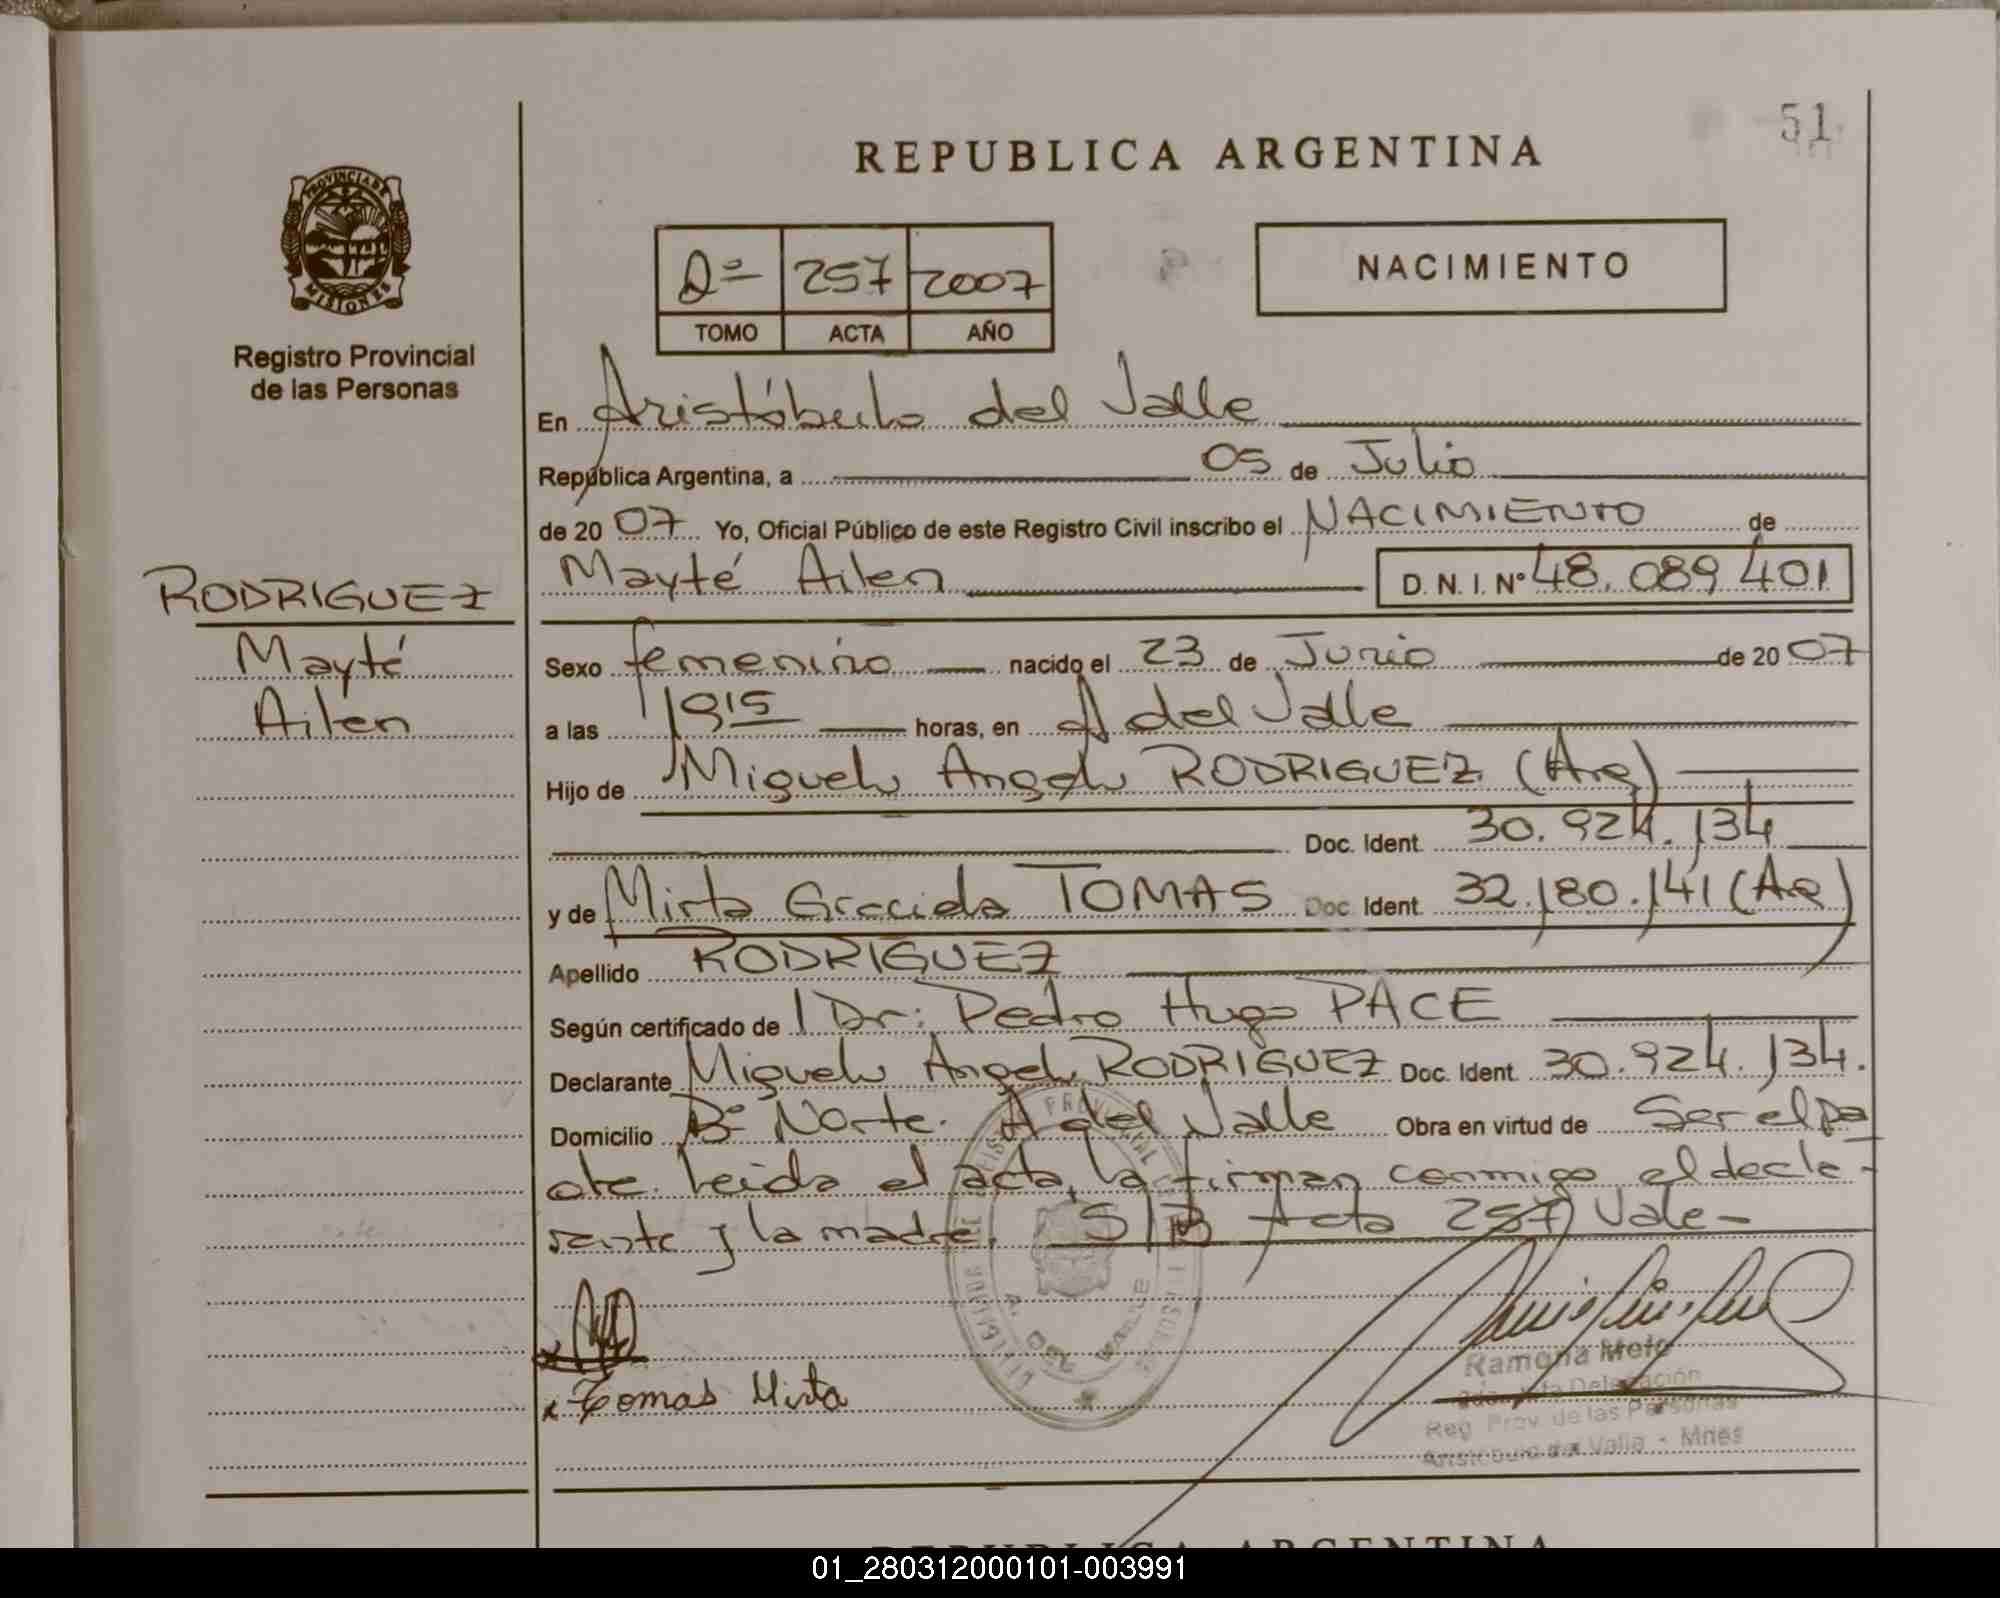 51
REPUBLICA ARGENTINA
PROVINCIA DE
MISIONES
Registro Provincial
de las Personas
2º 257 2007
TOMO ACTA AÑO
NACIMIENTO
En Aristóbulo del Valle
República Argentina, a 05 de Julio
de 2007 Yo, Oficial Público de este Registro Civil inscribo el NACIMIENTO de
Mayté Ailen D. N. I. Nº 48.089.401
RODRIGUEZ
Mayté
Ailen
Sexo femenino nacido el 23 de Junio de 2007
a las 1915 horas, en A del Valle
Hijo de Miguel Angel RODRIGUEZ (Arg)
Doc. Ident. 30.924.134
y de Mirta Graciela TOMAS Doc. Ident. 32.180.141 (Arg)
Apellido RODRIGUEZ
Según certificado de Dr: Pedro Hugo PACE
Declarante Miguel Angel RODRIGUEZ Doc. Ident. 30.924.134.
Domicilio Bº Norte. A del Valle Obra en virtud de Ser el pa
dre. Leida el acta, la firman conmigo el decla-
rante y la madre. S/B Acta 257) Vale-
A. DEL VALLE
x Tomas Mirta
Ramona Melo
Delegación
Reg. Prov. de las Personas
Aristóbulo del Valle - Mnes
REPUBLICA ARGENTINA
01_280312000101-003991